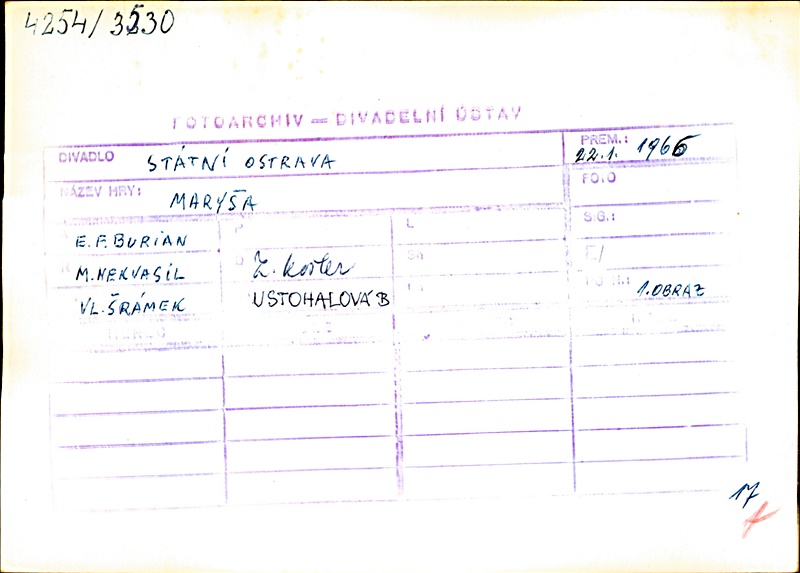 4254/3530
FOTOARCHIV — DIVADELNÍ ÚSTAV
DIVADLO STÁTNÍ OSTRAVA
PREM.: 22.1. 1966
NÁZEV HRY: MARYŠA
FOTO
E. F. BURIAN
P
L
SIG.:
M. NEKVASIL
Z. Košler
Č/
VL. ŠRÁMEK
USTOHALOVÁ B
1. OBRAZ
17